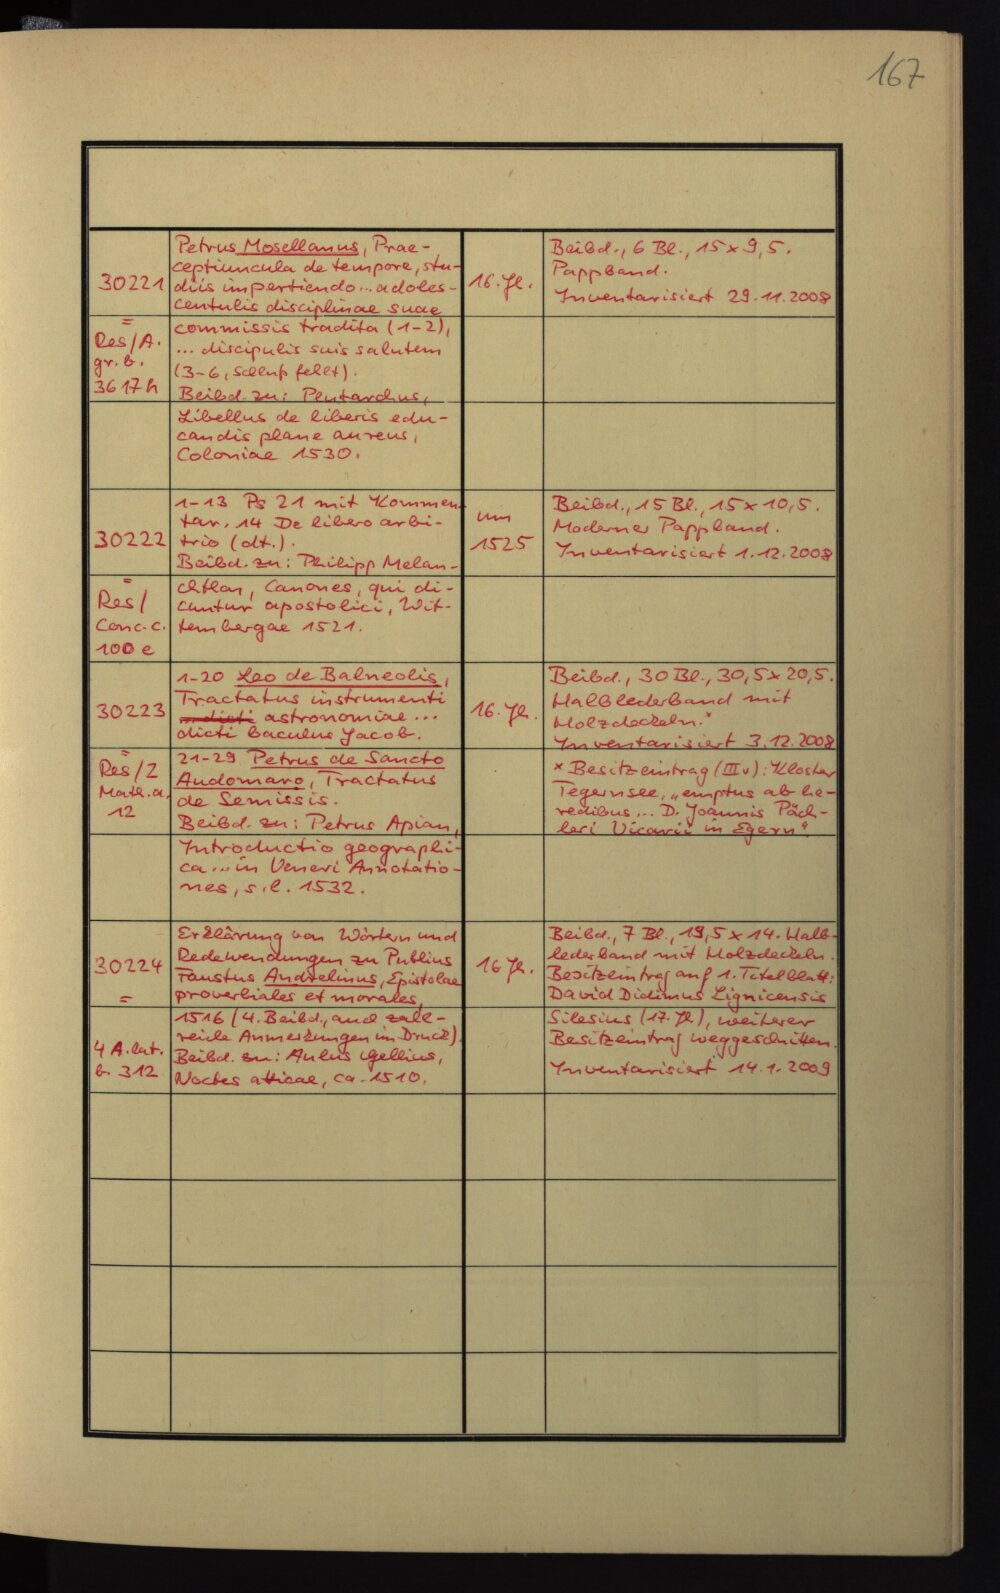 167
30221
=
Res/A.
gr. b.
3617 h
Petrus Mosellanus, Prae-
ceptiuncula de tempore, stu-
diis impertiendo... adoles-
centulis disciplinae suae
commissis tradita (1-2),
... discipulis suis salutem
(3-6, Schluß fehlt).
Beibd. zu: Plutarchus,
Libellus de liberis edu-
candis plane aureus,
Coloniae 1530.
16. Jh.
Beibd., 6 Bl., 15 x 9,5.
Pappband.
Inventarisiert 29.11.2008
30222
=
Res/
Conc. c.
100 e
1-13 Ps 21 mit Kommen-
tar. 14 De libero arbi-
trio (dt.).
Beibd. zu: Philipp Melan-
chthon, Canones, qui di-
cuntur apostolici, Wit-
tembergae 1521.
um
1525
Beibd., 15 Bl., 15 x 10,5.
Moderner Pappband.
Inventarisiert 1.12.2008
30223
=
Res/2
Math. a.
12
1-20 Leo de Balneolis,
Tractatus instrumenti
astronomiae ...
dicti baculus Jacob.
21-29 Petrus de Sancto
Audomaro, Tractatus
de Semissis.
Beibd. zu: Petrus Apian,
Introductio geographi-
ca ... in Veneri Annotatio-
nes, s.l. 1532.
16. Jh.
Beibd., 30 Bl., 30,5 x 20,5.
Halblederband mit
Holzdeckeln.x
Inventarisiert 3.12.2008
x Besitzeintrag (IIIv): Kloster
Tegernsee, „emptus ab he-
redibus ... D. Joannis Päch-
leri Vicarii in Egern“.
30224
=
4 A. lat.
b. 312
Erklärung von Wörtern und
Redewendungen zu Publius
Faustus Andrelinus, Epistolae
proverbiales et morales,
1516 (4. Beibd., auch zahl-
reiche Anmerkungen im Druck).
Beibd. zu: Aulus Gellius,
Noctes atticae, ca. 1510.
16. Jh.
Beibd., 7 Bl., 19,5 x 14. Halb-
lederband mit Holzdeckeln.
Besitzeintrag auf 1. Titelblatt:
David Didimus Lignicensis
Silesius (17. Jh.), weiterer
Besitzeintrag weggeschnitten.
Inventarisiert 14.1.2009